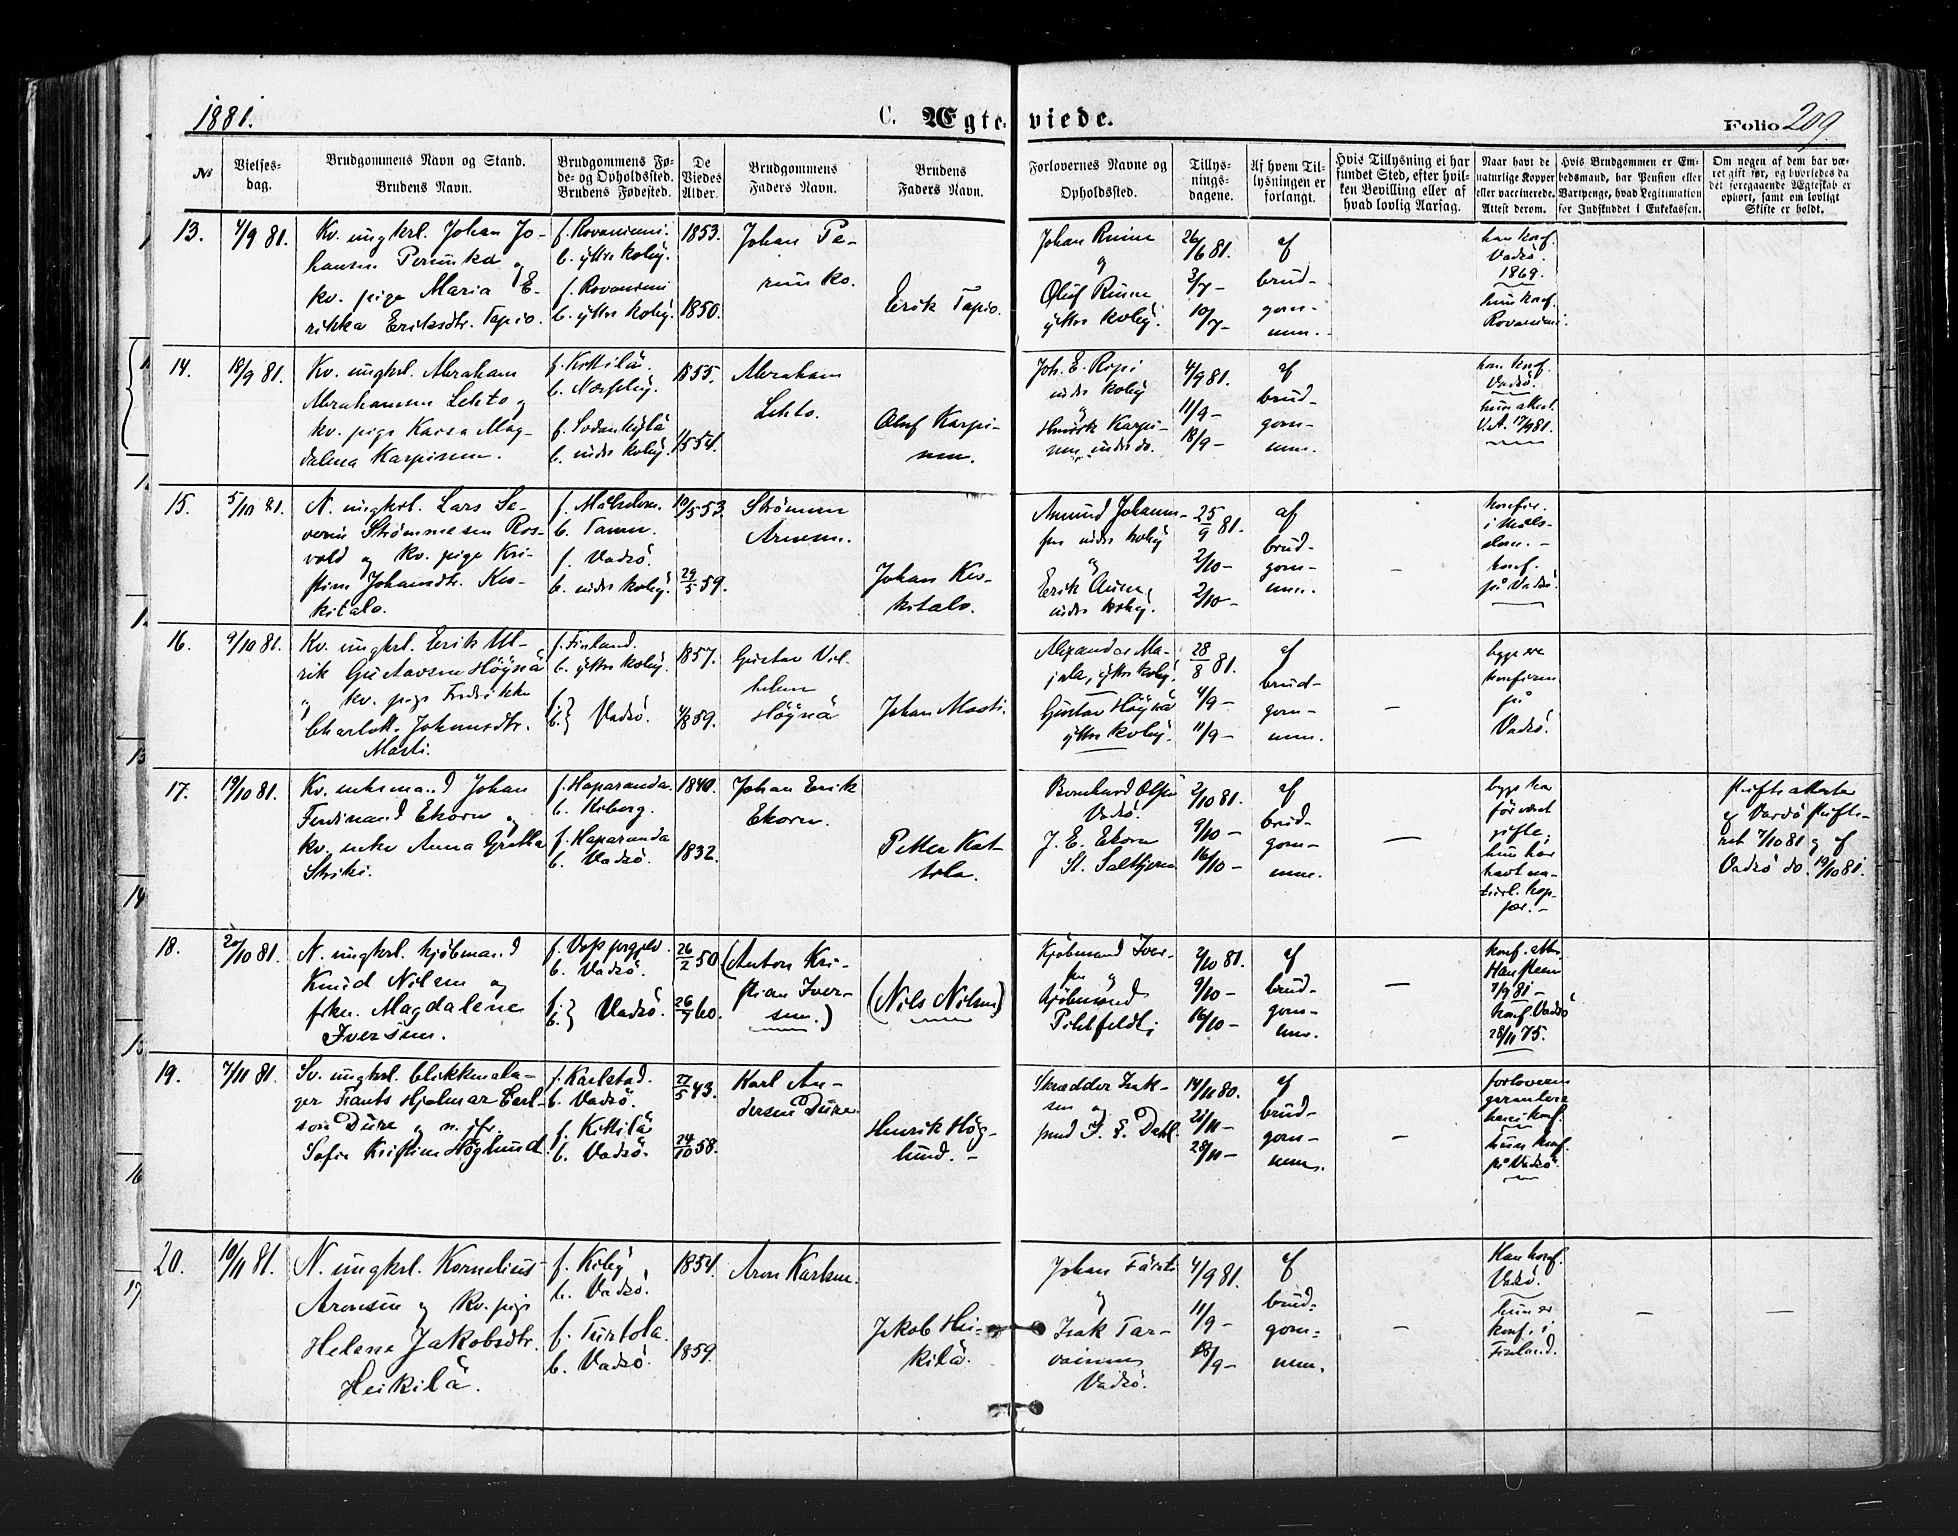 1881.
C. Ægteviede.
Folio 209
No
Vielses-
dag.
Brudgommens Navn og Stand.
Brudens Navn.
Brudgommens Fø-
de- og Opholdssted.
Brudens Fødested.
De
Viedes
Alder.
Brudgommens
Faders Navn.
Brudens
Faders Navn.
Forlovernes Navne og
Opholdssted.
Tillys-
nings-
dagene.
Af hvem Til-
lysningen er
forlangt.
Hvis Tillysning ei har
fundet Sted, efter hvil-
ken Bevilling eller af
hvad lovlig Aarsag.
Naar havt de
naturlige Kopper
eller vaccinerede.
Attest derom.
Hvis Brudgommen er Em-
bedsmand, har Pension eller
Vartpenge, hvad Legitimation
for Indskuddet i Enkekassen.
Om nogen af dem har væ-
ret gift før, og hvorledes da
det foregaaende Ægteskab er
ophørt, samt om lovligt
Skifte er holdt.
13.
4/9 81.
Kv. ungkrl. Johan Jo-
hansen Perunka og
kv. pige Maria E-
rikka Eriksdtr. Tapio.
f. Rovaniemi.
b. yttre kvby.
f. Rovaniemi
b. yttre kvby.
1853.
1850.
Johan Pe-
runka.
Erik Tapio.
Johan Ruine
og
Oluf Ruine
yttre kvby.
26/6 81.
3/7 -
10/7 -
af
brud-
gom-
men.
han konf.
Vadsö.
1869.
hun konf.
Rovaniemi.
14.
18/9 81.
Kv. ungkrl. Abraham
Abrahamsen Lehto og
kv. pige Kaisa Mag-
dalena Karpinen.
f. Kittilä.
b. Næsseby.
f. Sodankylä
b. indre kvby.
1855.
1/5 54.
Abraham
Lehto.
Oluf Karpi-
nen.
Joh. E. Ropi
indre kvby
og
Henrik Karpi-
nen indre do.
4/9 81.
11/9 -
18/9 -
af
brud-
gom-
men.
han konf.
Vadsö.
hun attest
V.A. 17/9 81.
15.
5/10 81.
N. ungkrl. Lars Se-
verin Strömmesen Ros-
vold og kv. pige Kri-
stine Johansdtr. Kes-
kitalo.
f. Målselven.
b. Tanen.
f. Vadsö.
b. indre kvby.
10/5 53.
29/5 59.
Strömme
Arnesen.
Johan Kes-
kitalo.
Amund Johann-
sen indre kvby
og
Erik Aune,
indre kvby.
25/9 81.
2/10 -
2/10 -
af
brud-
gom-
men.
-
konfir.
i Måls-
elven. -
konf.
på Vadsö.
16.
9/10 81.
Kv. ungkrl. Erik Ul-
rik Gustavsen Höynä
og kv. pige Fredrikke
Charlotte Johannesdtr.
Masti.
f. Finland.
b. yttre kvby.
f. b. } Vadsö.
1857.
4/8 59.
Gustav Vil-
helm
Höynä
Johan Masti.
Alexander Ma-
jala, yttre kvby.
Gustav Höynä
yttre kvby.
28/8 81.
4/9 -
11/9 -
af
brud-
gom-
men.
-
begge ere
konfirm
på
Vadsö.
17.
19/10 81.
Kv. enkemand Johan
Ferdinand Ekorn og
kv. enke Anna Gretha
Strike.
f. Haparanda.
b. Kiberg.
f. Haparanda
b. Vadsö.
1840.
1832.
Johan Erik
Ekorn.
Petter Kat-
tola.
Bernhard Olsen
Vadsö.
J. E. Ekorn
St. Saltfjeren
2/10 81.
9/10 -
16/10 -
af
brud-
gom-
men.
-
begge har
för været
gifte;
hun har
havt na-
turl. kop-
per. -
skifteattester
af Vardö skifte-
ret 7/10 81 og af
Vadsö do. 19/10 81.
18.
20/10 81.
N. ungkrl. kjöbmand
Knud Nilsen og
frkn. Magdalene
Iversen.
f. Voss prgjeld.
b. Vadsö.
f. b. } Vadsö.
26/2 50
26/7 60.
(Anton Kri-
stian Iver-
sen.)
(Nils Nilsen)
Kjöbmand Iver-
sen og
kjöbmand
Pihlfeldt;
2/10 81.
9/10 -
16/10 -
af
brud-
gom-
men.
-
konf. att.
Hansteen
7/9 81 -
konf. Vadsö
28/11 75.
19.
7/11 81.
Sv. ungkrl. blikkensla-
ger Frants Hjalmar Carl-
son Dûre og n. jfr.
Sofie Kristine Höglund.
f. Karlstad.
b. Vadsö.
f. Kittilä
b. Vadsö.
27/5 43.
24/10 58.
Karl An-
dersen Dûre.
Henrik Hög-
lund. -
Skrædder Isak-
sen og
smed J. E. Dahl.
14/11 80.
21/11 -
28/11 -
af
brud-
gom-
men.
-
forloverne
garantere
hans konf.
hun konf.
på Vadsö.
20.
10/11 81.
N. ungkrl. Kornelius
Aronsen og kv. pige
Helena Jakobsdtr.
Heikilä.
f. Kiby
b. Vadsö.
f. Turtola.
b. Vadsö.
1854.
1859.
Aron Karlsen.
Jakob Hei-
kilä.
Johan Färsti
og
Isak Tar-
vainen
Vadsö.
4/9 81.
11/9 -
18/9 -
af
brud-
gom-
men.
-
Han konf.
Vadsö.
hun er
konf. i
Finland.
-
-